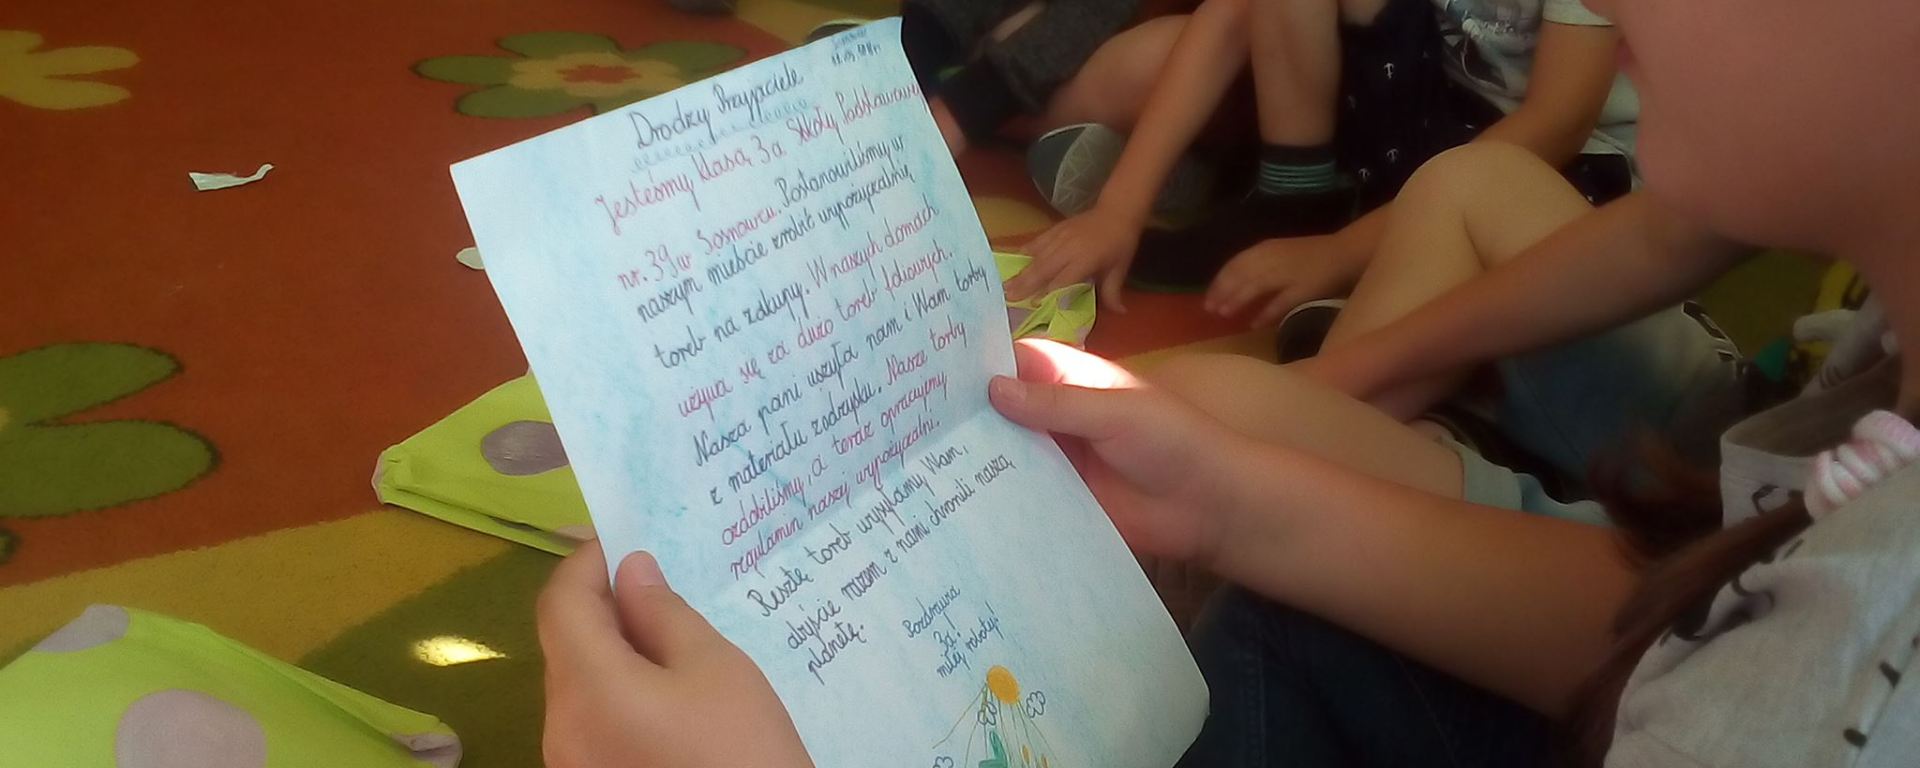 Drodzy Przyjaciele
Jesteśmy klasą 3a Szkoły Podstawowej
nr. 39 w Sosnowcu. Postanowiliśmy w
naszym mieście zrobić wypożyczalnię
toreb na zakupy. W naszych domach
używa się za dużo toreb foliowych.
Nasza pani uszyła nam i Wam torby
z materiału zadrysku. Nasze torby
ozdobiliśmy, a teraz opracujemy
regulamin naszej wypożyczalni.
Resztę toreb wysyłamy Wam,
abyście razem z nami chronili naszą
planetę.
Pozdrawia
3a.
miłej roboty!